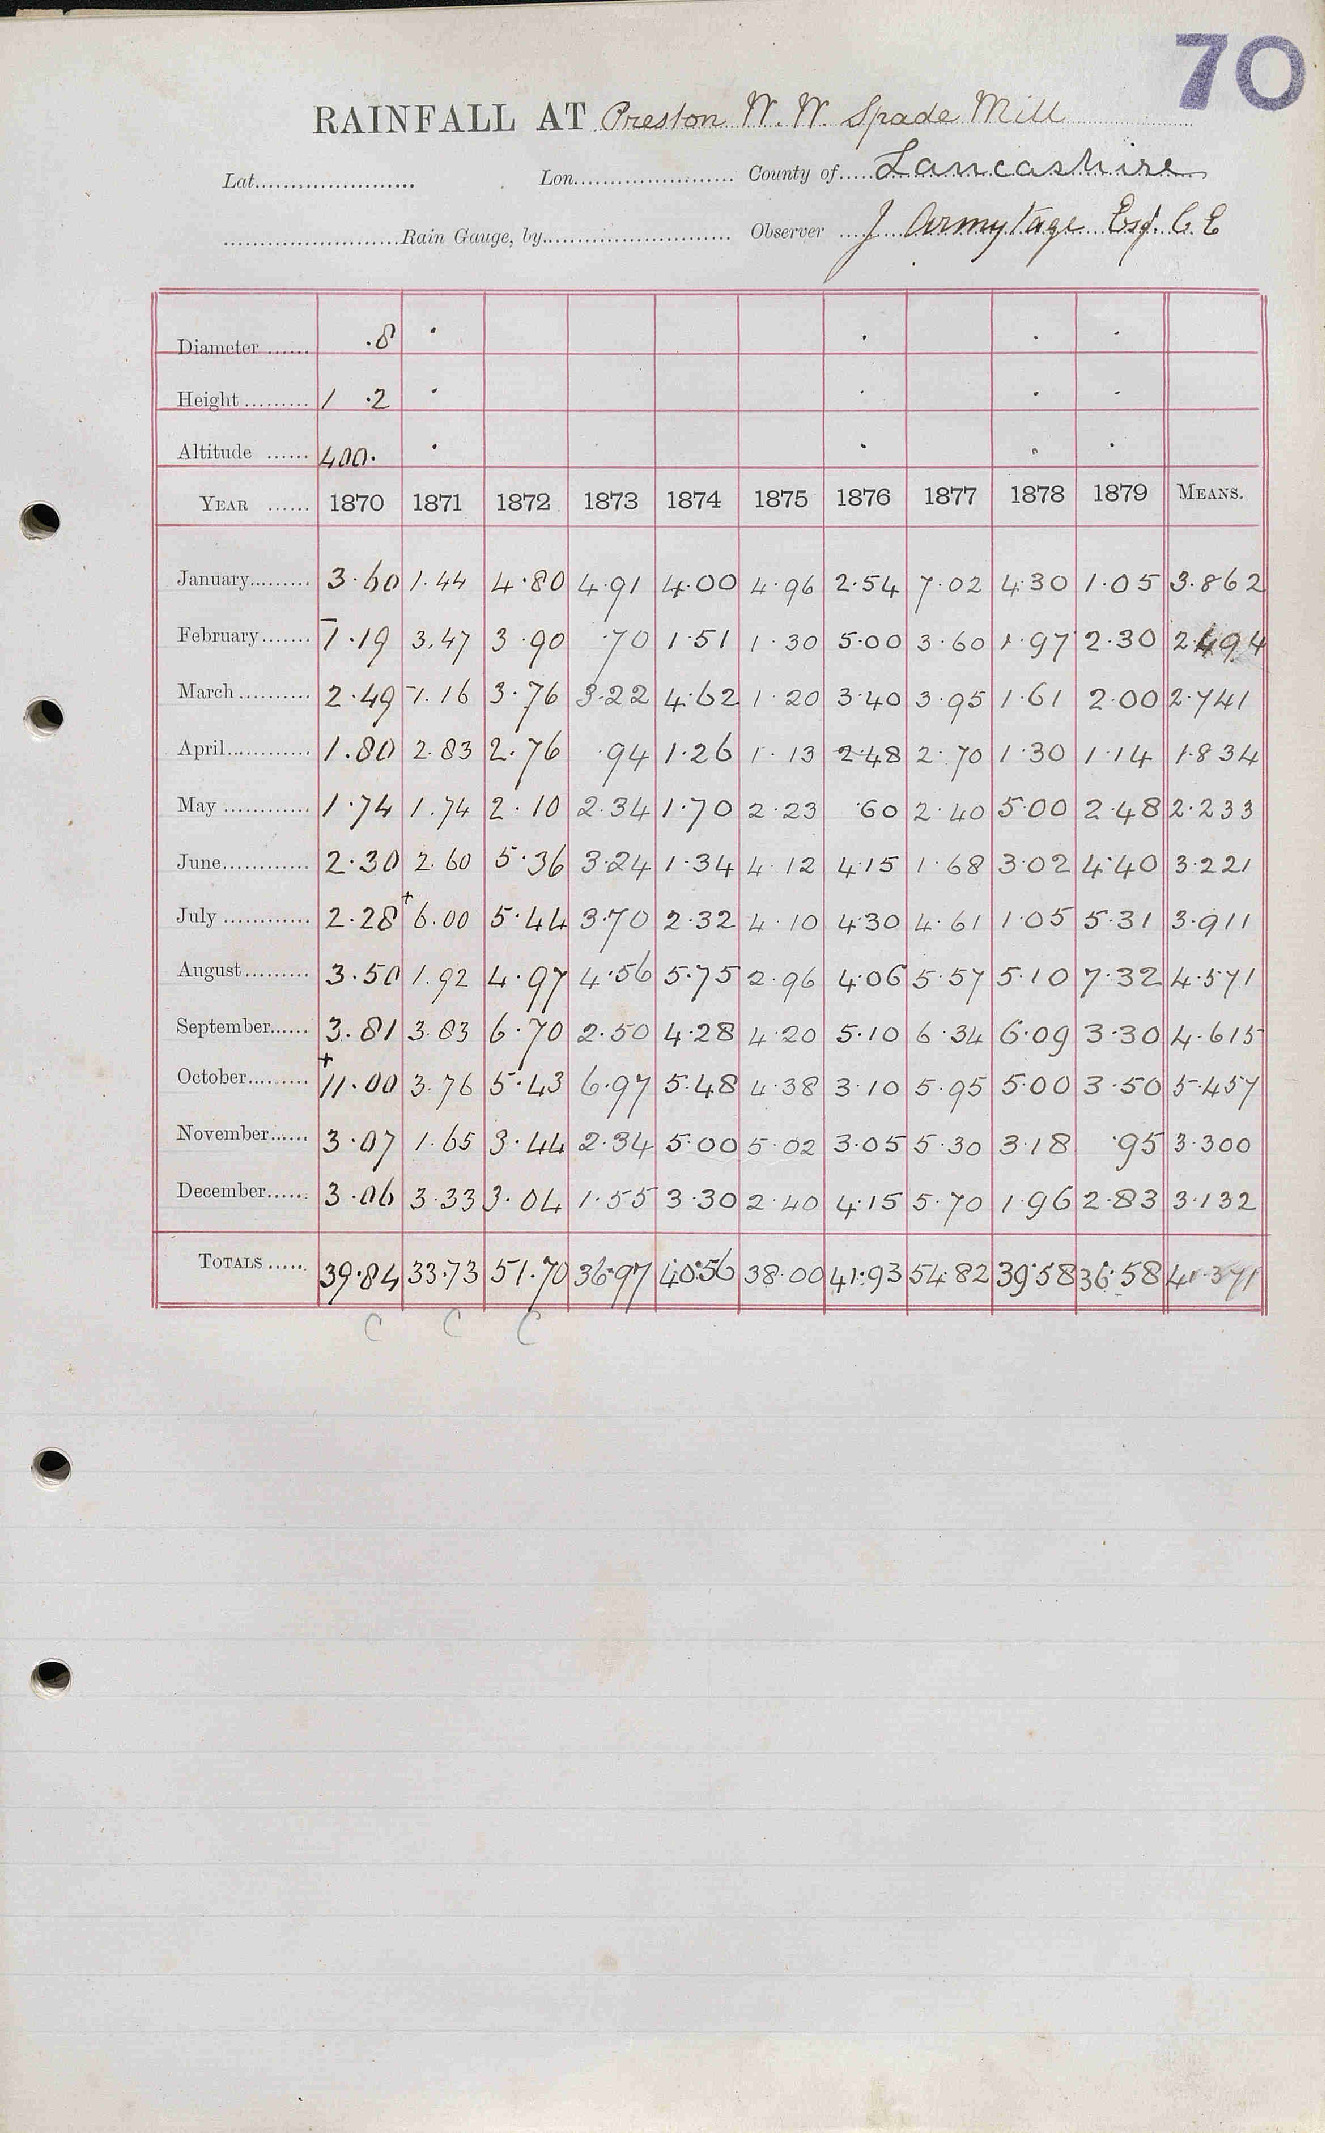 70
RAINFALL AT Preston W. W. Spade Mill
Lat. Lon. County of Lancashire
Rain Gauge, by Observer J Armytage Esq. C. E
Diameter .8
Height 1 .2
Altitude 400.
YEAR 1870 1871 1872 1873 1874 1875 1876 1877 1878 1879 MEANS.
January 3.60 1.44 4.80 4.91 4.00 4.96 2.54 7.02 4.30 1.05 3.862
February 1.19 3.47 3.90 .70 1.51 1.30 5.00 3.60 1.97 2.30 2.494
March 2.49 1.16 3.76 3.22 4.62 1.20 3.40 3.95 1.61 2.00 2.741
April 1.80 2.83 2.76 .94 1.26 1.13 2.48 2.70 1.30 1.14 1.834
May 1.74 1.74 2.10 2.34 1.70 2.23 .60 2.40 5.00 2.48 2.233
June 2.30 2.60 5.36 3.24 1.34 4.12 4.15 1.68 3.02 4.40 3.221
July 2.28 + 6.00 5.44 3.70 2.32 4.10 4.30 4.61 1.05 5.31 3.911
August 3.50 1.92 4.97 4.56 5.75 2.96 4.06 5.57 5.10 7.32 4.571
September 3.81 3.83 6.70 2.50 4.28 4.20 5.10 6.34 6.09 3.30 4.615
October + 11.00 3.76 5.43 6.97 5.48 4.38 3.10 5.95 5.00 3.50 5.457
November 3.07 1.65 3.44 2.34 5.00 5.02 3.05 5.30 3.18 .95 3.300
December 3.06 3.33 3.04 1.55 3.30 2.40 4.15 5.70 1.96 2.83 3.132
TOTALS 39.84 33.73 51.70 36.97 40.56 38.00 41.93 54.82 39.58 36.58 41.371
C C C